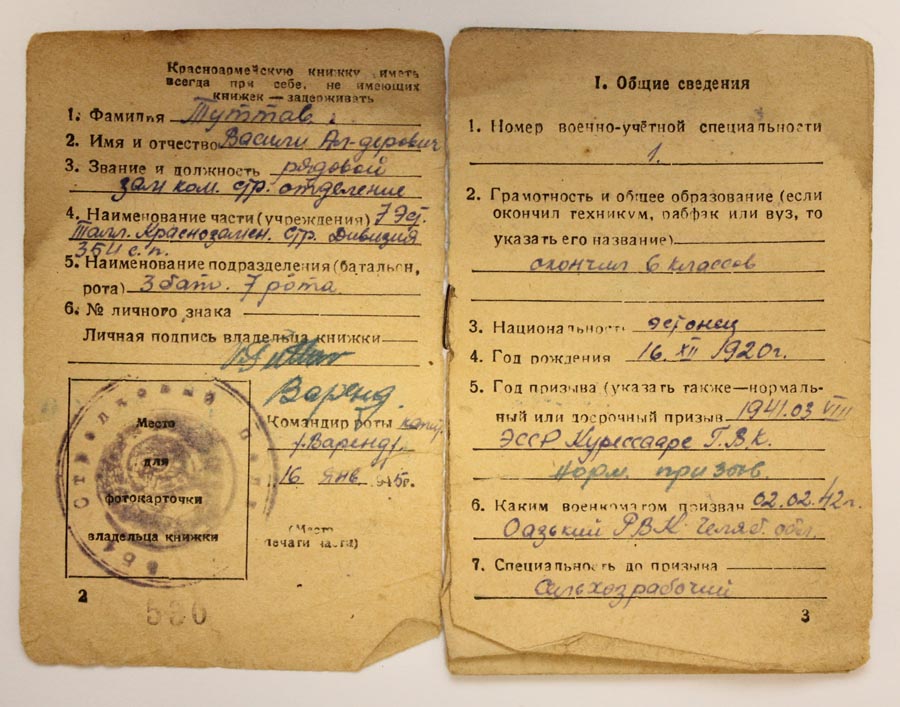 Красноармейскую книжку иметь
всегда при себе, не имеющих
книжек — задерживать
1. Фамилия Туттав
2. Имя и отчество Васили Ал-дерович
3. Звание и должность рядовой
зам ком. стр. отделение
4. Наименование части (учреждения) 7 Эст.
Талл. Краснознамен. стр. Дивизия
354 с.п.
5. Наименование подразделения (батальон,
рота) 3 бат. 7 рота
6. № личного знака
Личная подпись владельца книжки
Варенд
Командир роты кап.
/Варенд/
16 янв 1945г.
Место
для
фотокарточки
владельца книжки
(Место
печати части)
Стрелковый
2
590
I. Общие сведения
1. Номер военно-учётной специальности
1.
2. Грамотность и общее образование (если
окончил техникум, рабфак или вуз, то
указать его название)
окончил 6 классов
3. Национальность эстонец
4. Год рождения 16. XII 1920г.
5. Год призыва (указать также—нормаль-
ный или досрочный призыв 1941.03 VIII
ЭССР Курессааре Г.В.К.
Норм. призыв
6. Каким военкоматом призван 02.02.42г.
РВК Челяб. обл.
7. Специальность до призыва
Сельхозрабочий
3